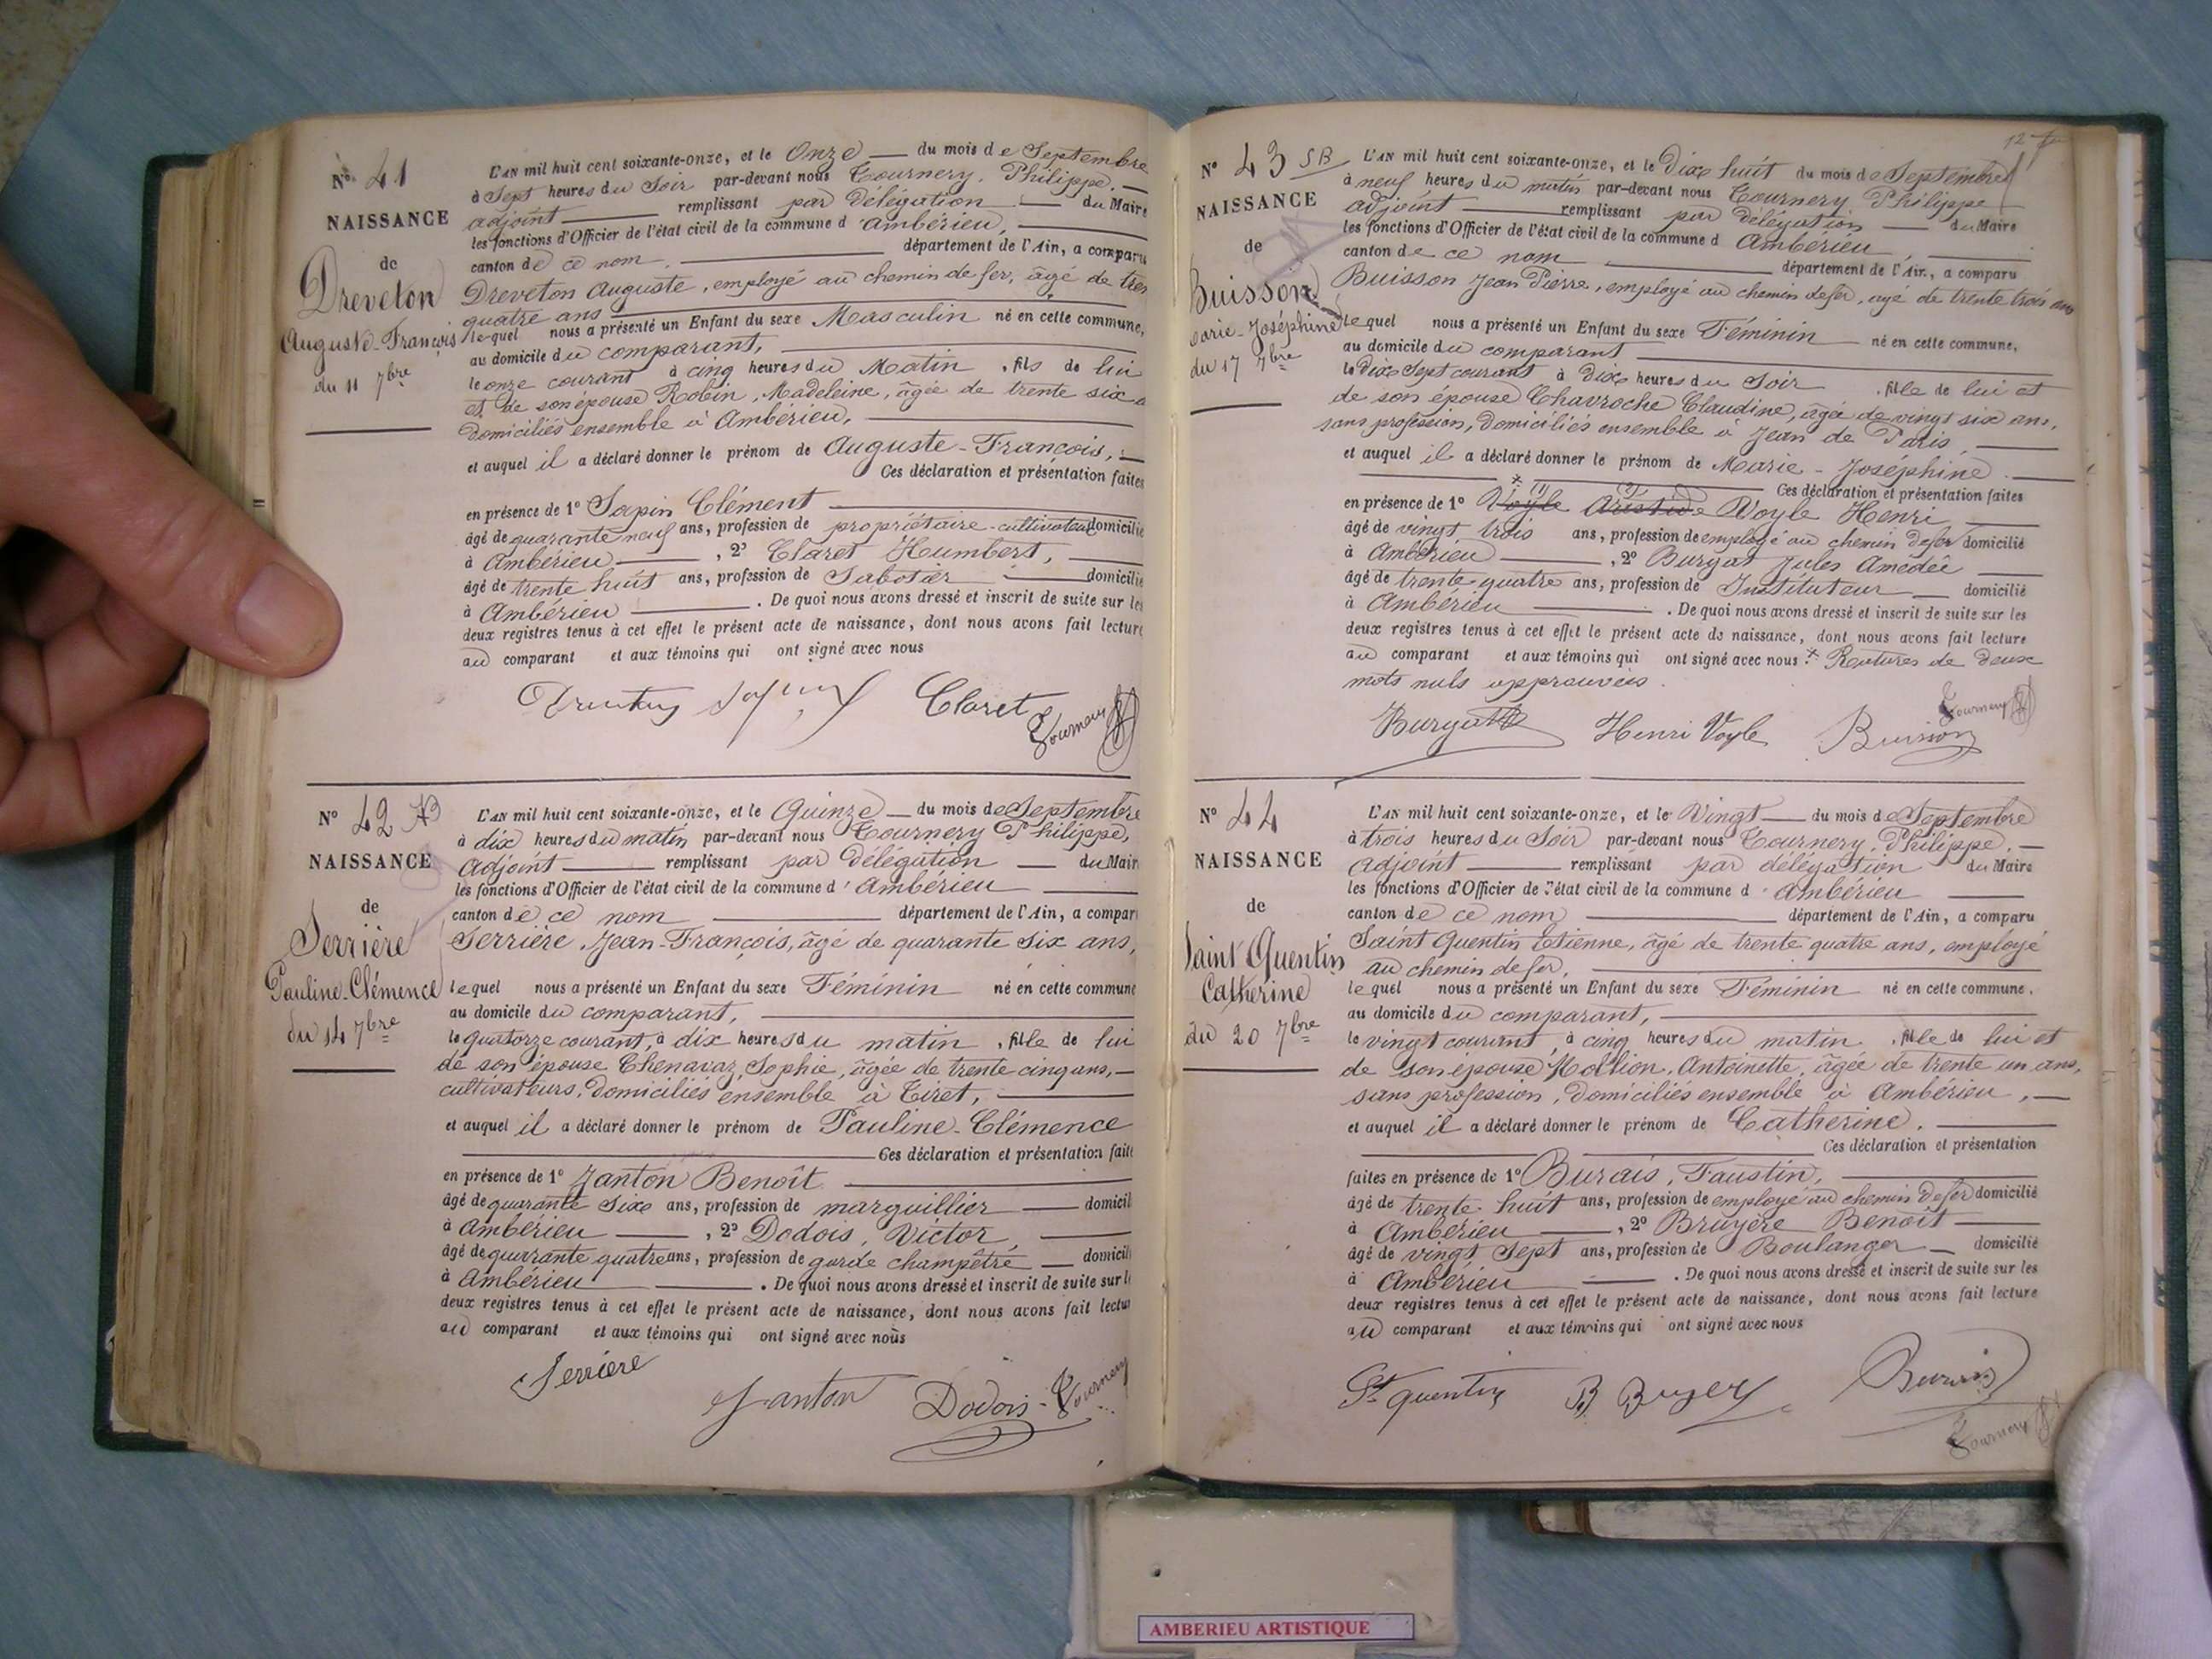 N° 41
NAISSANCE
de
Dreveton
Auguste-François
du 11 7bre
L'AN mil huit cent soixante-onze, et le Onze du mois de Septembre
à Sept heures du Soir par-devant nous Tournery, Philippe,
adjoint remplissant par délégation du Maire
les fonctions d'Officier de l'état civil de la commune d'Ambérieu,
canton de ce nom, département de l'Ain, a comparu
Dreveton Auguste, employé au chemin de fer, âgé de tren
quatre ans
lequel nous a présenté un Enfant du sexe Masculin né en cette commune,
au domicile du comparant,
le onze courant à cinq heures du Matin, fils de lui
et de son épouse Robin, Madeleine, âgée de trente six a
domiciliés ensemble à Ambérieu,
et auquel il a déclaré donner le prénom de Auguste-François,
Ces déclaration et présentation faites
en présence de 1° Sapin Clément
âgé de quarante neuf ans, profession de propriétaire-cultivateur domicilié
à Ambérieu, 2° Claret Humbert,
âgé de trente huit ans, profession de Sabotier domicilié
à Ambérieu. De quoi nous avons dressé et inscrit de suite sur les
deux registres tenus à cet effet le présent acte de naissance, dont nous avons fait lecture
au comparant et aux témoins qui ont signé avec nous
Claret
Tournery
N° 42
NAISSANCE
de
Serrière
Pauline-Clémence
du 14 7bre
L'AN mil huit cent soixante-onze, et le Quinze du mois de Septembre
à dix heures du matin par-devant nous Tournery Philippe,
adjoint remplissant par délégation du Mair
les fonctions d'Officier de l'état civil de la commune d'Ambérieu
canton de ce nom département de l'Ain, a compar
Serrière, Jean-François, âgé de quarante six ans,
lequel nous a présenté un Enfant du sexe Féminin né en cette commune
au domicile du comparant,
le quatorze courant, à dix heures du matin, fille de lui
de son épouse Chenavaz, Sophie, âgée de trente cinq ans,
cultivateurs, domiciliés ensemble à Tiret,
et auquel il a déclaré donner le prénom de Pauline-Clémence
Ces déclaration et présentation faite
en présence de 1° Janton Benoît
âgé de quarante six ans, profession de marguillier domicil
à Ambérieu, 2° Dodois, Victor,
âgé de quarante quatre ans, profession de garde champêtre domicili
à Ambérieu. De quoi nous avons dressé et inscrit de suite sur l
deux registres tenus à cet effet le présent acte de naissance, dont nous avons fait lectur
au comparant et aux témoins qui ont signé avec nous
Serriere
Janton Dodois Tournery
N° 43 SB
NAISSANCE
de
Buisson
Marie-Joséphine
du 17 7bre
L'AN mil huit cent soixante-onze, et le Dix huit du mois de Septembre
à neuf heures du matin par-devant nous Tournery Philippe
adjoint remplissant par délégation du Maire
les fonctions d'Officier de l'état civil de la commune d Ambérieu,
canton de ce nom, département de l'Ain, a comparu
Buisson Jean Pierre, employé au chemin de fer, âgé de trente trois ans
lequel nous a présenté un Enfant du sexe Féminin né en cette commune,
au domicile du comparant
le Dix Sept courant à Dix heures du Soir, fille de lui et
de son épouse Chavroche Claudine, âgée de vingt six ans,
sans profession, domiciliés ensemble à Jean de Paris,
et auquel il a déclaré donner le prénom de Marie-Joséphine.
Ces déclaration et présentation faites
en présence de 1° Voyle Aristide Voyle Henri
âgé de vingt trois ans, profession de employé au chemin de fer domicilié
à Ambérieu, 2° Burgat Jules Amédée
âgé de trente quatre ans, profession de Instituteur domicilié
à Ambérieu. De quoi nous avons dressé et inscrit de suite sur les
deux registres tenus à cet effet le présent acte de naissance, dont nous avons fait lecture
au comparant et aux témoins qui ont signé avec nous. × Ratures de deux
mots nuls approuvées.
Burgat Henri Voyle Buisson Tournery
N° 44
NAISSANCE
de
Saint Quentin
Catherine
du 20 7bre
L'AN mil huit cent soixante-onze, et le Vingt du mois de Septembre
à trois heures du Soir par-devant nous Tournery, Philippe,
adjoint remplissant par délégation du Maire
les fonctions d'Officier de l'état civil de la commune d'Ambérieu
canton de ce nom département de l'Ain, a comparu
Saint Quentin Etienne, âgé de trente quatre ans, employé
au chemin de fer,
lequel nous a présenté un Enfant du sexe Féminin né en cette commune,
au domicile du comparant,
le vingt courant, à cinq heures du matin, fille de lui et
de son épouse Mollion, Antoinette, âgée de trente un ans,
sans profession, domiciliés ensemble à Ambérieu,
et auquel il a déclaré donner le prénom de Catherine.
Ces déclaration et présentation
faites en présence de 1° Burais, Faustin,
âgé de trente huit ans, profession de employé au chemin de fer domicilié
à Ambérieu, 2° Bruyère Benoît
âgé de vingt Sept ans, profession de Boulanger domicilié
à Ambérieu. De quoi nous avons dressé et inscrit de suite sur les
deux registres tenus à cet effet le présent acte de naissance, dont nous avons fait lecture
au comparant et aux témoins qui ont signé avec nous
St quentin Burais
Tournery
AMBERIEU ARTISTIQUE